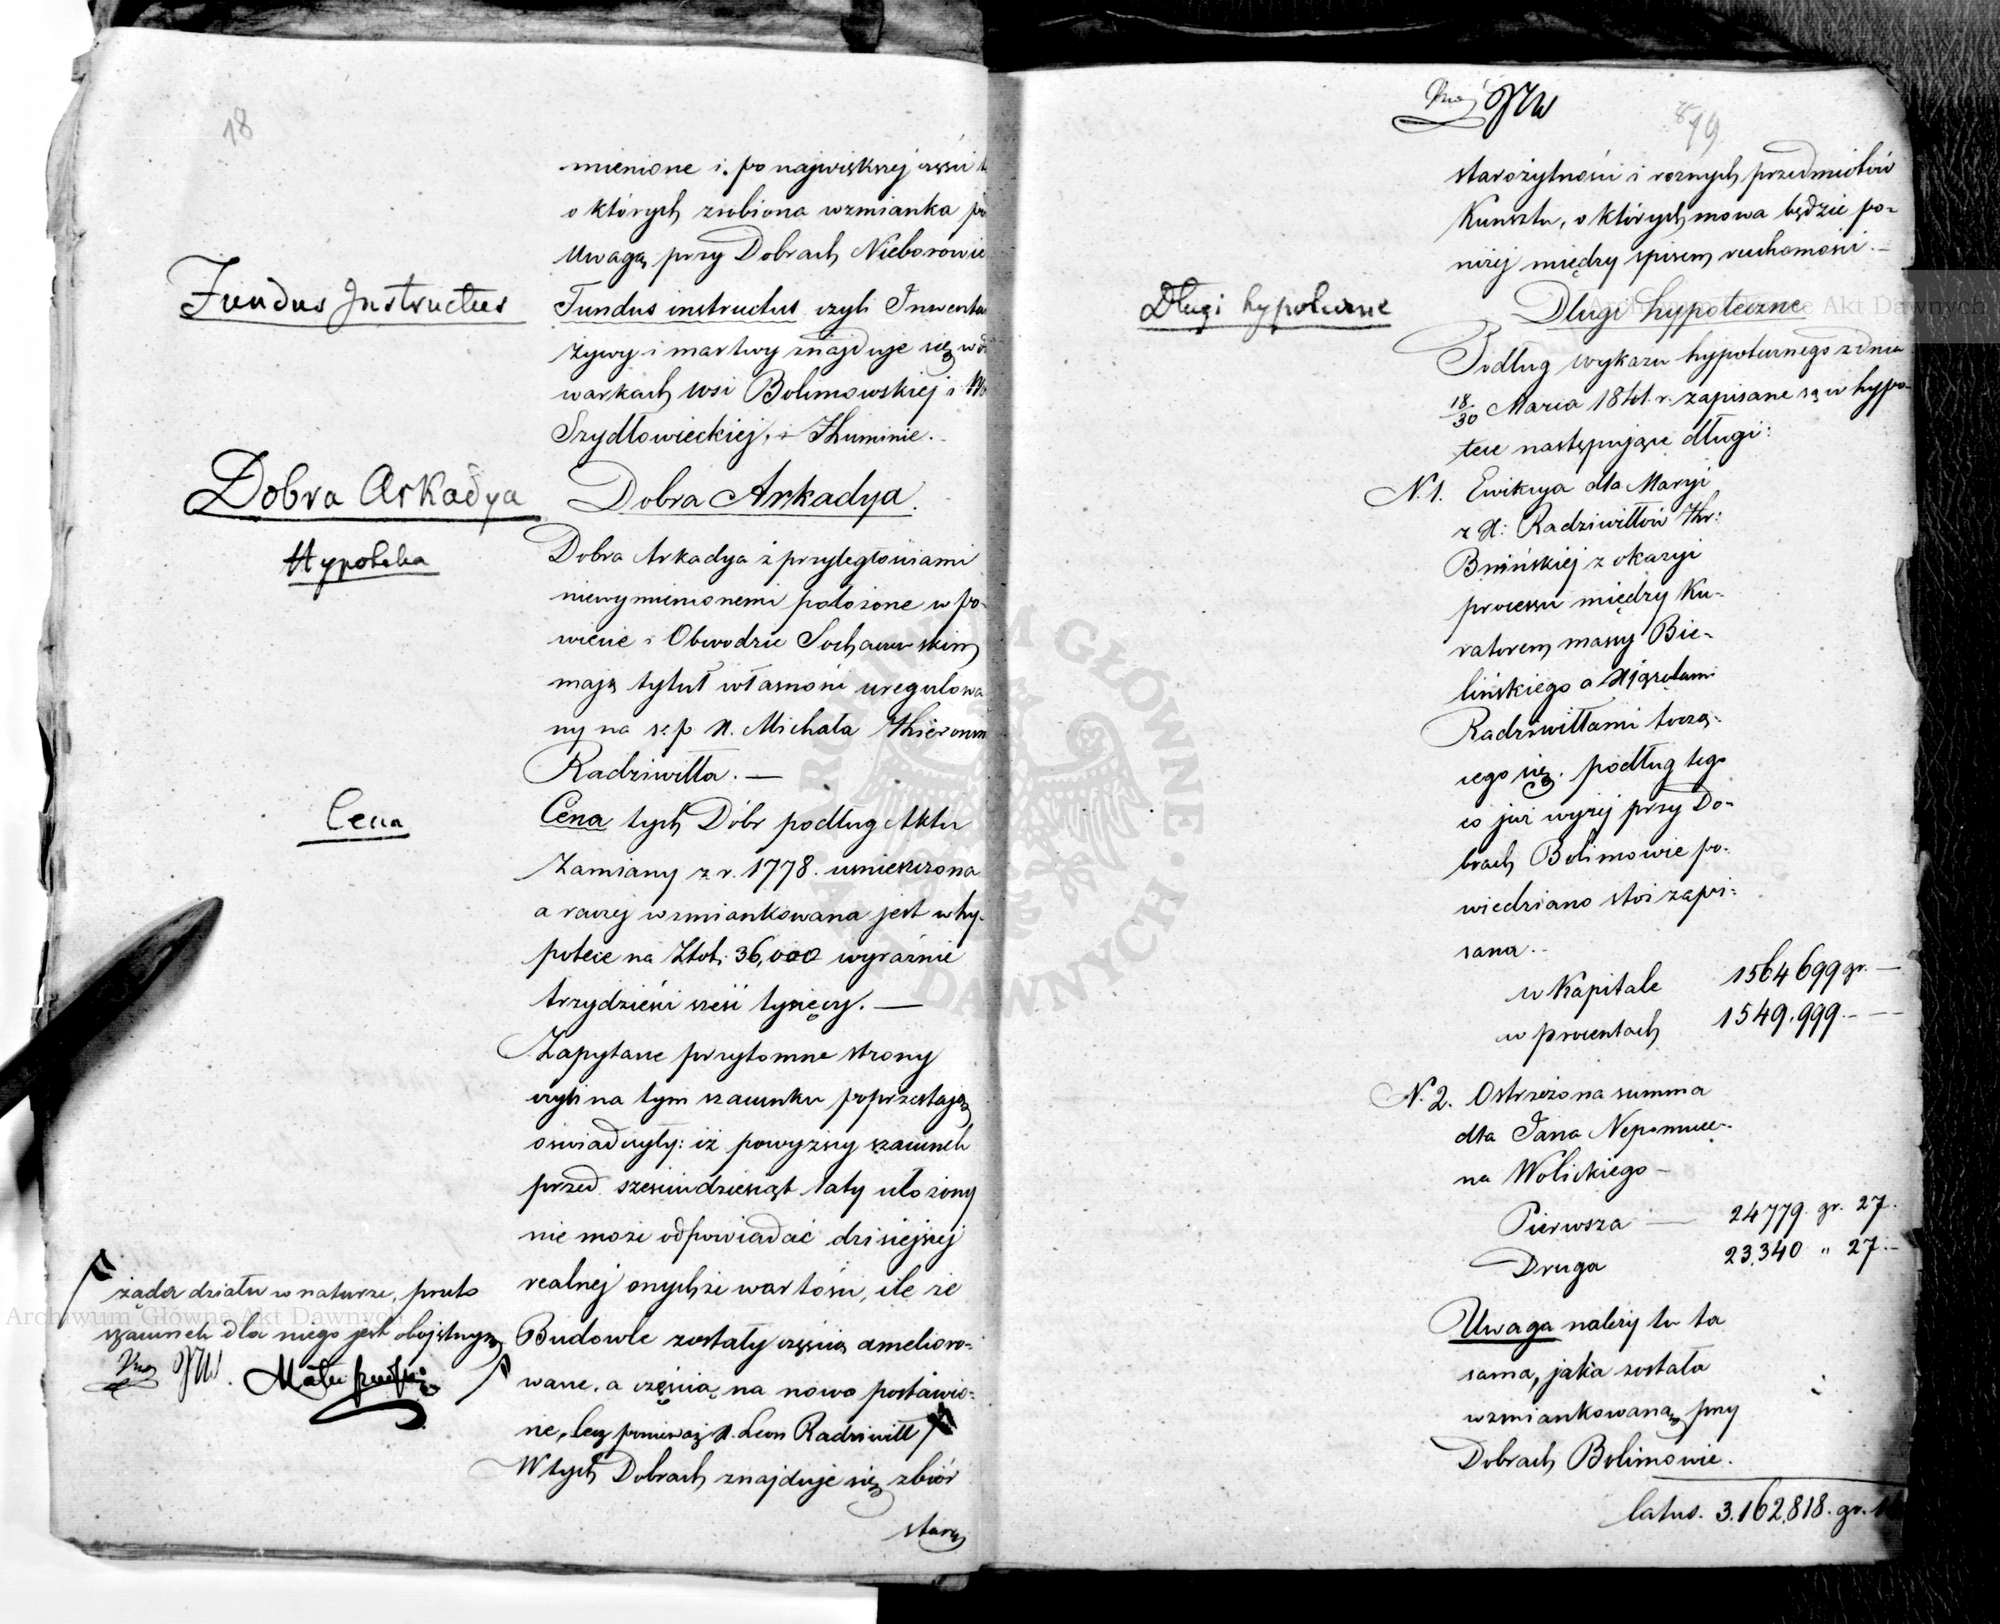 18
mienione i po największej części
o których zrobiona wzmianka
Uwagą przy Dobrach Nieborowie
Fundus Instructus
Fundus instructus czyli Inwenta
żywy i martwy znajduje się w
warkach wsi Bolimowskiej i
Szydłowieckiej, i Huminie.
Dobra Arkadya
Dobra Arkadya.
Hypoteka
Dobra Arkadya z przyległościami
niewymienionemi położone w po-
wiecie i Obwodzie Sochaczewskim
mają tytuł własności uregulowa
ny na ś: p X. Michała Hieronim
Radziwiłła. —
Cena
Cena tych Dóbr podług Aktu
Zamiany z r. 1778. umieszczona
a raczej wzmiankowana jest w hy-
potece na Złot: 36,000 wyraźnie
trzydzieści sześć tysięcy. —
Zapytane przytomne strony
czyli na tym szacunku poprzestają
oświadczyły: iż powyższy szacunek
przed sześćdziesiąt laty ułożony
nie może odpowiadać dzisiejszej
realnej onychże wartości, ile że
Budowle zostały częścią ameliоro-
wane, a częścią na nowo postawio-
ne, lecz ponieważ X. Leon Radziwiłł
żąda działu w naturze, przeto
szacunek dla niego jest obojętnym
W tych Dobrach znajduje się zbiór
staro
79
starożytności i rożnych przedmiotów
Kunsztu, o których mowa będzie po-
niżej między spisem ruchomości. —
Długi hypoteczne
Długi hypoteczne
Podług wykazu hypotecznego z dnia
18/30 Marca 1841. r. zapisane są w hypo-
tece następujące długi:
N. 1. Ewikcya dla Maryi
z X: Radziwiłłów Hr:
Bnińskiej z okazyi
processu między Ku-
ratorem massy Bie-
lińskiego a Xiążętami
Radziwiłłami toczą-
cego się. podług tego
co już wyżej przy Do-
brach Bolimowie po-
wiedziano stoi zapi-
sana. -
w Kapitale 1564699 gr. —
w procentach 1549.999. — —
N. 2. Ostrzeżona summa
dla Jana Nepomuce-
na Wolickiego —
Pierwsza — 24779. gr. 27.
Druga 23.340 „ 27. —
Uwaga należy tu ta
sama, jaka została
wzmiankowaną przy
Dobrach Bolimowie.
latus. 3.162,818. gr.
ARCHIWUM GŁÓWNE AKT DAWNYCH
Archiwum Główne Akt Dawnych
Archiwum Główne Akt Dawnych